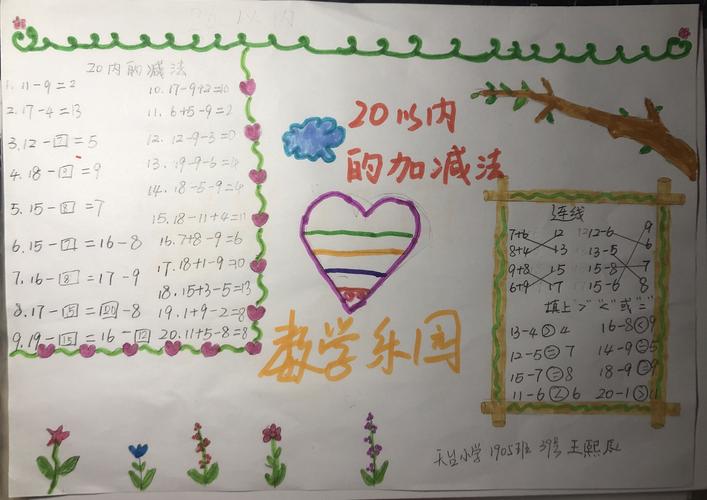 20内的减法
1. 11-9=2
2. 17-4=13
3. 12-7=5
4. 18-9=9
5. 15-8=7
6. 15-7=16-8
7. 16-8=17-9
8. 17-15=-8
9. 19-15=16-12
10. 17-9+2=10
11. 6+5-9=2
12. 12-9-3=0
13. 19-9-6=4
14. 18-5-9=4
15. 18-11+4=11
16. 7+8-9=6
17. 18+1-9=10
18. 15+3-5=13
19. 1+9-2=8
20. 11+5-8=8
20以内
的加减法
数学乐园
连线
7+6 12 12-6 9
8+4 13 13-5 6
9+8 15 15-8 7
6+9 17 15-6 8
填上">""<"或"="
13-4>4 16-8<9
12-5=7 14-9=5
15-7=8 18-9=9
11-6 6 20-1>11
天台小学 1905班 39号 王熙